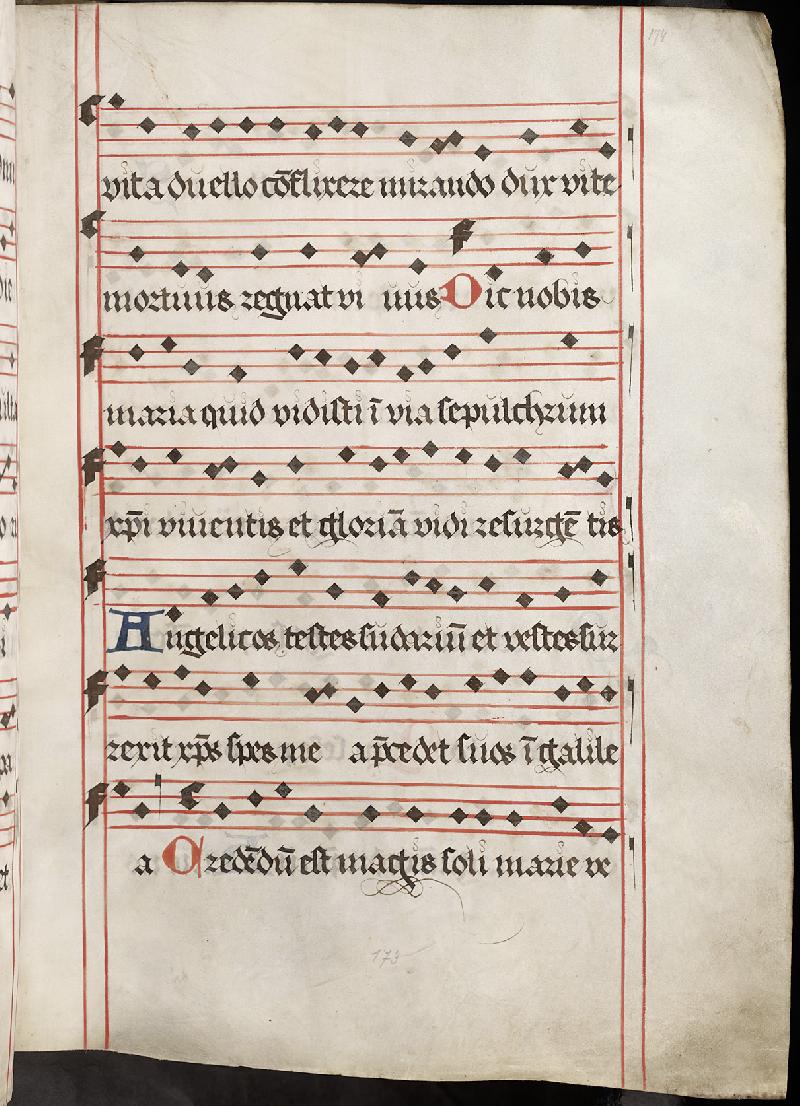 174
vita duello cōflixere mirando dux vite
mortuus regnat vi uus Dic nobis
maria quid vidisti ī via sepulchrum
xp̄i viuentis et gloriā vidi resurgē tis
Angelicos testes sudariū et vestes sur
rexit xp̄s spes me a p̄cedet suos ī galile
a Credēdū est magis soli marie ve
173